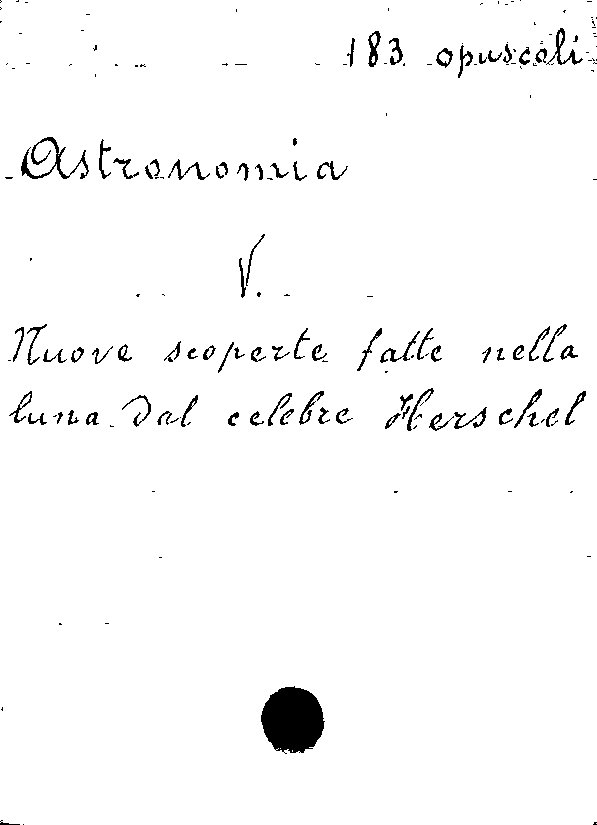 183 opuscoli
Astronomia
V.
Nuove scoperte fatte nella
luna dal celebre Herschel